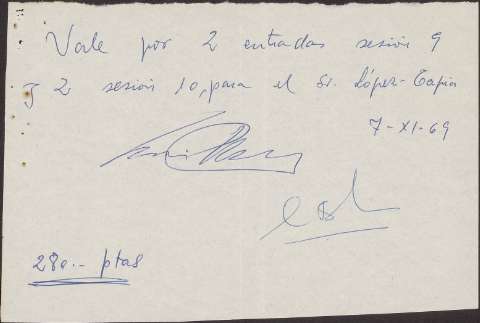 Vale por 2 entradas sesión 9
y 2 sesión 10, para el Sr. López-Tapia
7-XI-69
280.- ptas